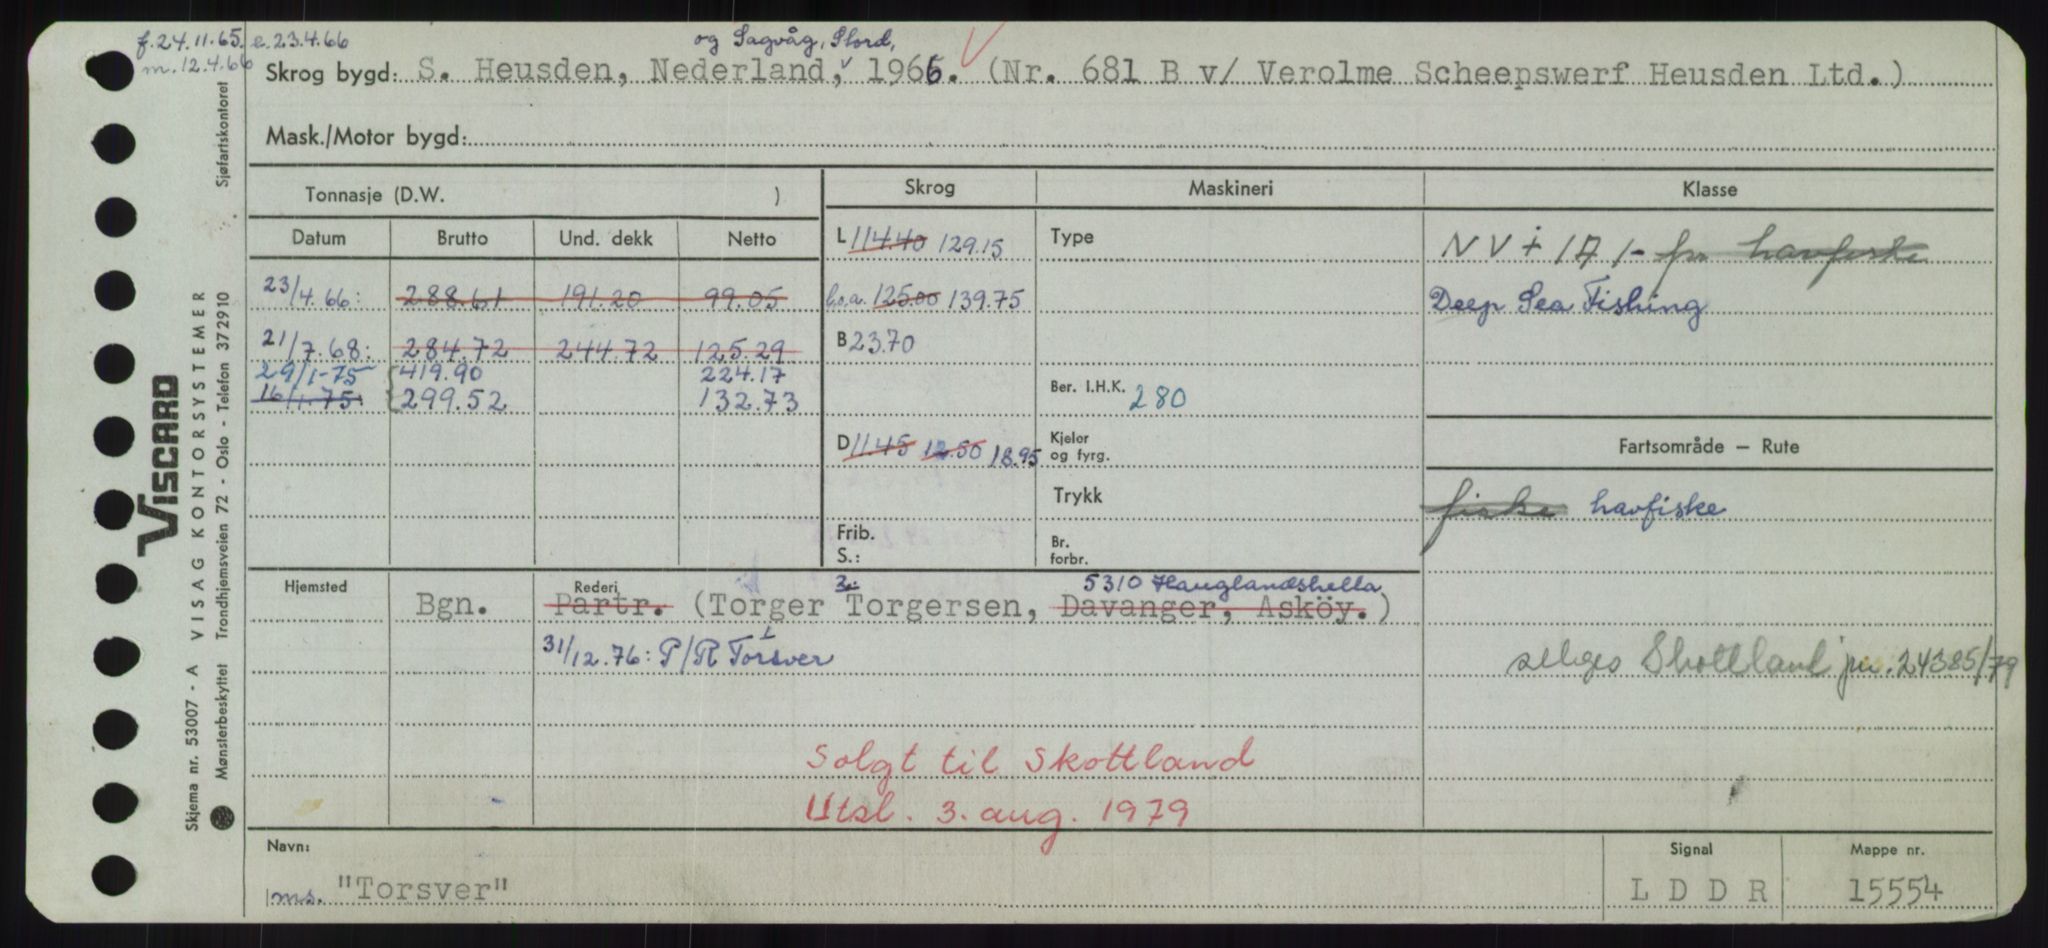 f. 24.11.65. e. 23.4.66
m. 12.4.66
og Sagvåg, Stord,
Skrog bygd: S. Heusden, Nederland, 1966. (Nr. 681 B v/ Verolme Scheepswerf Heusden Ltd.)
Mask./Motor bygd:
Tonnasje (D.W. )
Skrog Maskineri Klasse
Datum Brutto Und. dekk Netto
L 114.40 129.15
Type
NV + 1A 1 - for havfiske
23/4.66: 288.61 191.20 99.05
l.o.a. 125.00 139.75
Deep Sea Fishing
21/7.68: 284.72 244.72 125.29
B 23.70
29/1-75 419.90 224.17
16/1.75: 299.52 132.73
Ber. I.H.K. 280
D 11.45 12.50 18.95
Kjeler og fyrg.
Fartsområde — Rute
Trykk
fiske havfiske
Frib.
S.:
Br. forbr.
Hjemsted Rederi 2: 5310 Hauglandshella
Bgn. Partr. (Torger Torgersen, Davanger, Asköy.)
31/12.76: P/R Torsver
selges Skottland jnr. 24385/79
Solgt til Skottland
Utsl. 3. aug. 1979
Navn: Signal Mappe nr.
ms. "Torsver" L D D R 15554
Skjema nr. 53007 - A VISAG KONTORSYSTEMER Sjøfartskontoret
Mønsterbeskyttet Trondhjemsveien 72 - Oslo - Telefon 372910
VISCARD